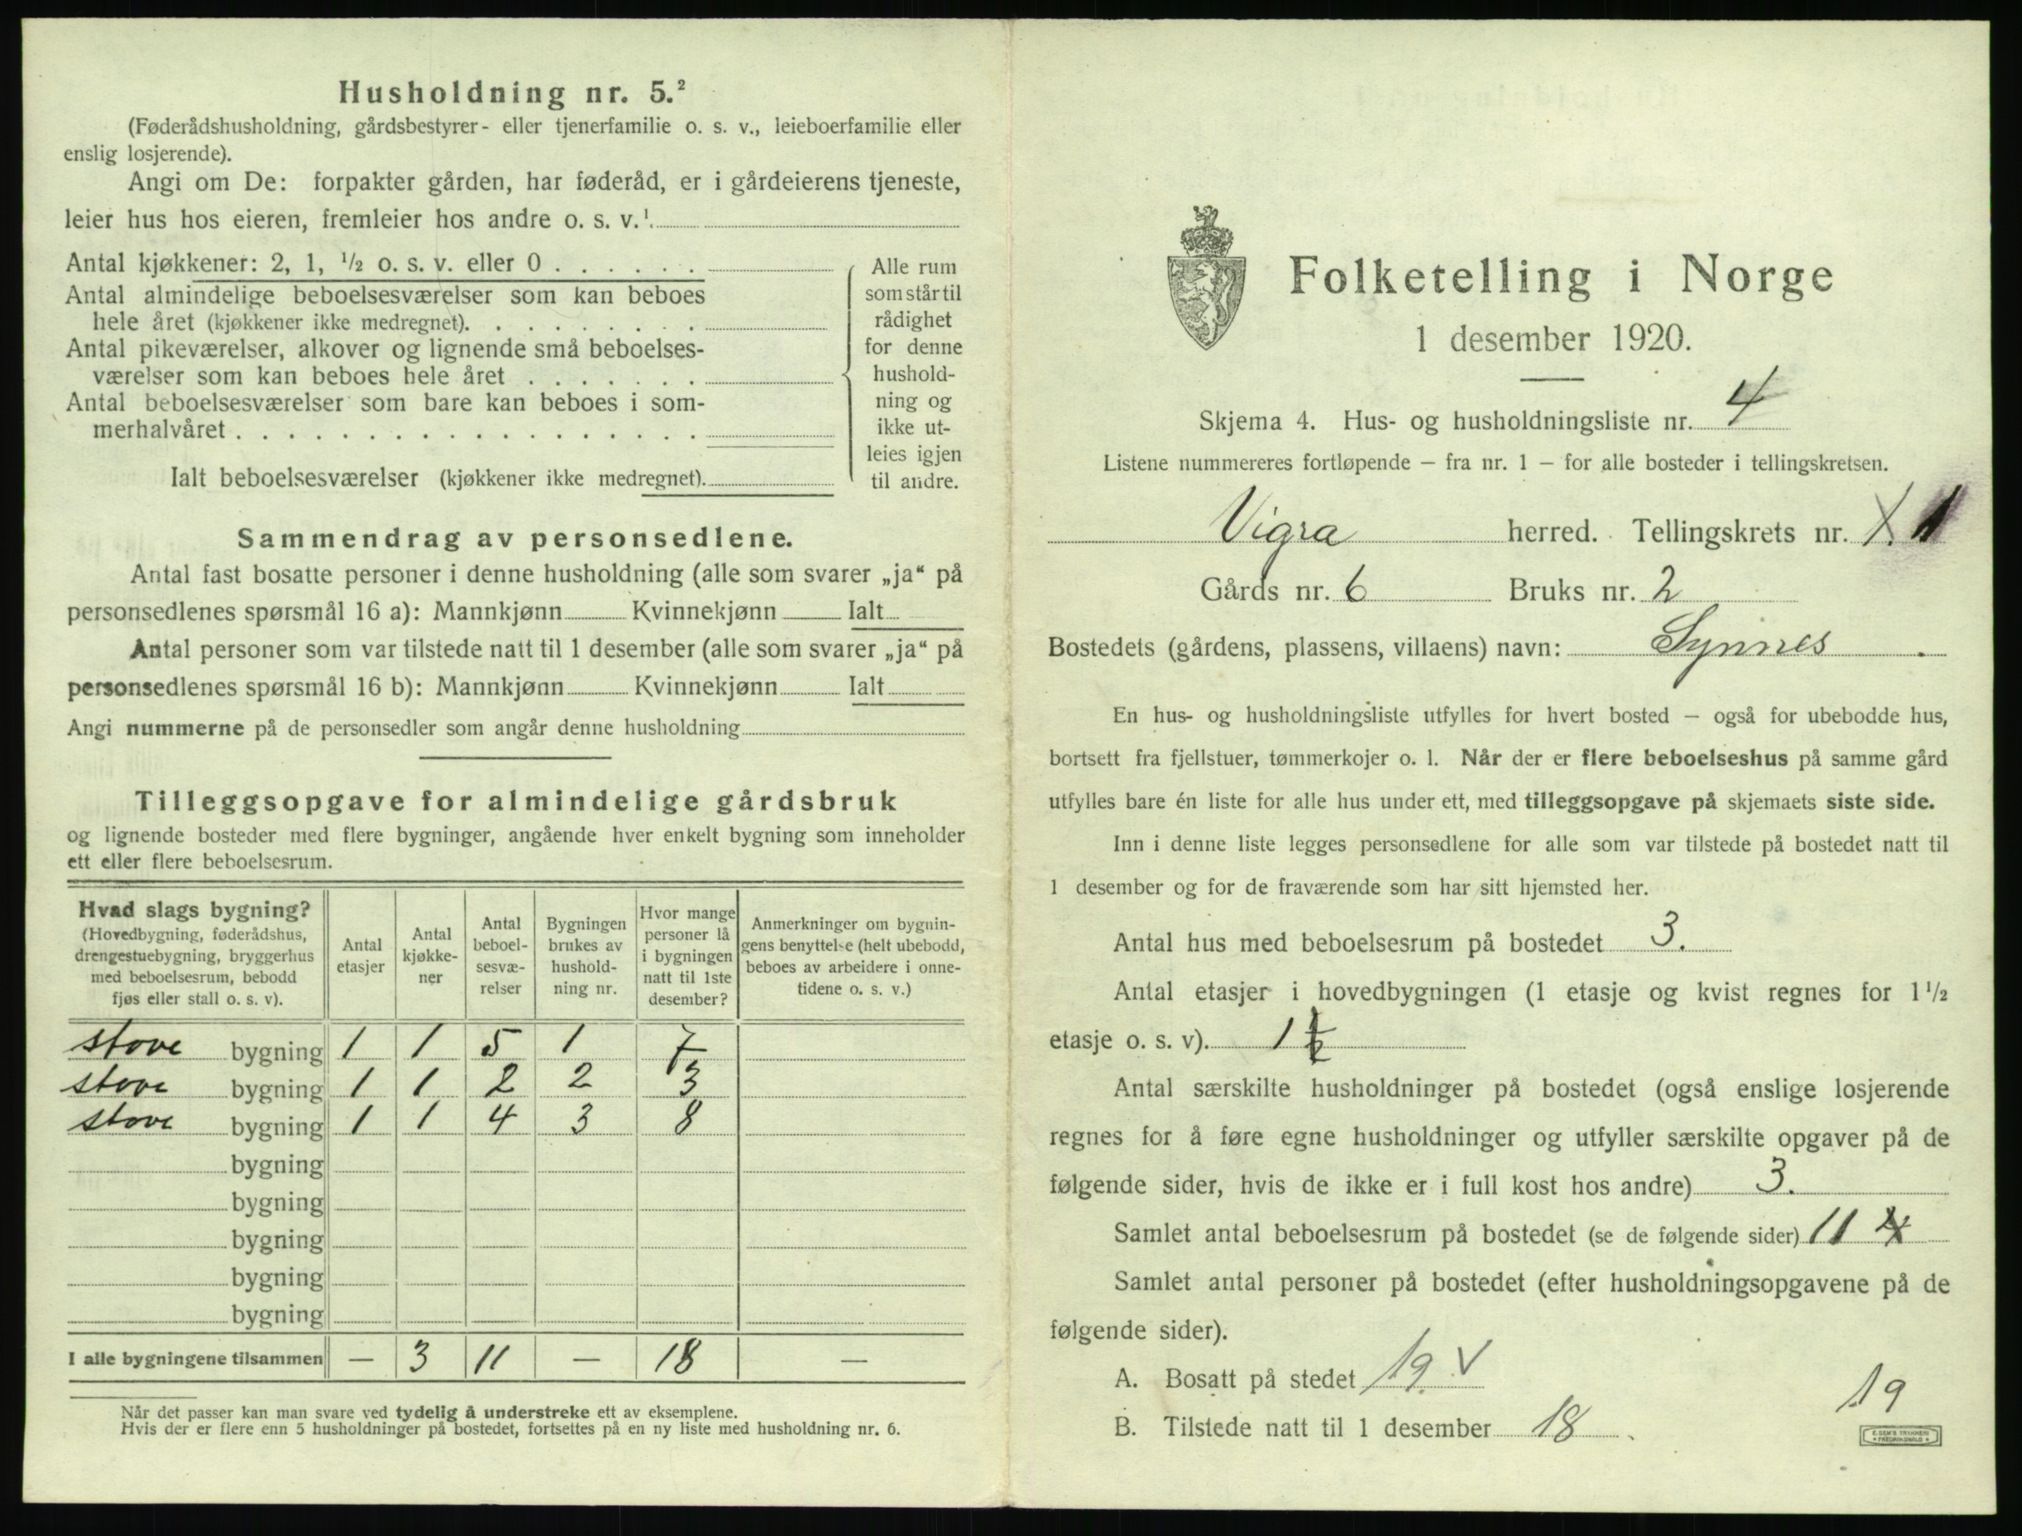 Husholdning nr. 5.²
(Føderådshusholdning, gårdsbestyrer- eller tjenerfamilie o. s. v., leieboerfamilie eller
enslig losjerende).
Angi om De: forpakter gården, har føderåd, er i gårdeierens tjeneste,
leier hus hos eieren, fremleier hos andre o. s. v.¹
Antal kjøkkener: 2, 1, ½ o. s. v. eller 0 . . . . . .
Antal almindelige beboelsesværelser som kan beboes
hele året (kjøkkener ikke medregnet). . . . . . . . .
Antal pikeværelser, alkover og lignende små beboelses-
værelser som kan beboes hele året . . . . . . .
Antal beboelsesværelser som bare kan beboes i som-
merhalvåret . . . . . . . . . . . . . . . . . .
Ialt beboelsesværelser (kjøkkener ikke medregnet).
Alle rum
som står til
rådighet
for denne
hushold-
ning og
ikke ut-
leies igjen
til andre.
Sammendrag av personsedlene.
Antal fast bosatte personer i denne husholdning (alle som svarer „ja“ på
personsedlenes spørsmål 16 a): Mannkjønn Kvinnekjønn Ialt
Antal personer som var tilstede natt til 1 desember (alle som svarer „ja“ på
personsedlenes spørsmål 16 b): Mannkjønn Kvinnekjønn Ialt
Angi nummerne på de personsedler som angår denne husholdning
Tilleggsopgave for almindelige gårdsbruk
og lignende bosteder med flere bygninger, angående hver enkelt bygning som inneholder
ett eller flere beboelsesrum.
Hvad slags bygning?
(Hovedbygning, føderådshus,
drengestuebygning, bryggerhus
med beboelsesrum, bebodd
fjøs eller stall o. s. v).
Antal
etasjer
Antal
kjøkke-
ner
Antal
beboel-
sesvæ-
relser
Bygningen
brukes av
hushold-
ning nr.
Hvor mange
personer lå
i bygningen
natt til 1ste
desember?
Anmerkninger om bygnin-
gens benyttelse (helt ubebodd,
beboes av arbeidere i onne-
tidene o. s. v.)
stove bygning 1 1 5 1 7
stove bygning 1 1 2 2 3
stove bygning 1 1 4 3 8
bygning
bygning
bygning
bygning
bygning
I alle bygningene tilsammen — 3 11 — 18 —
Når det passer kan man svare ved tydelig å understreke ett av eksemplene.
Hvis der er flere enn 5 husholdninger på bostedet, fortsettes på en ny liste med husholdning nr. 6.
Folketelling i Norge
1 desember 1920.
Skjema 4. Hus- og husholdningsliste nr. 4
Listene nummereres fortløpende — fra nr. 1 — for alle bosteder i tellingskretsen.
Vigra herred. Tellingskrets nr. 1. 1
Gårds nr. 6 Bruks nr. 2
Bostedets (gårdens, plassens, villaens) navn: Synnes.
En hus- og husholdningsliste utfylles for hvert bosted — også for ubebodde hus,
bortsett fra fjellstuer, tømmerkojer o. l. Når der er flere beboelseshus på samme gård
utfylles bare én liste for alle hus under ett, med tilleggsopgave på skjemaets siste side.
Inn i denne liste legges personsedlene for alle som var tilstede på bostedet natt til
1 desember og for de fraværende som har sitt hjemsted her.
Antal hus med beboelsesrum på bostedet 3.
Antal etasjer i hovedbygningen (1 etasje og kvist regnes for 1½
etasje o. s. v). 1½
Antal særskilte husholdninger på bostedet (også enslige losjerende
regnes for å føre egne husholdninger og utfyller særskilte opgaver på de
følgende sider, hvis de ikke er i full kost hos andre) 3.
Samlet antal beboelsesrum på bostedet (se de følgende sider) 11
Samlet antal personer på bostedet (efter husholdningsopgavene på de
følgende sider).
A. Bosatt på stedet 19 V
19
B. Tilstede natt til 1 desember 18